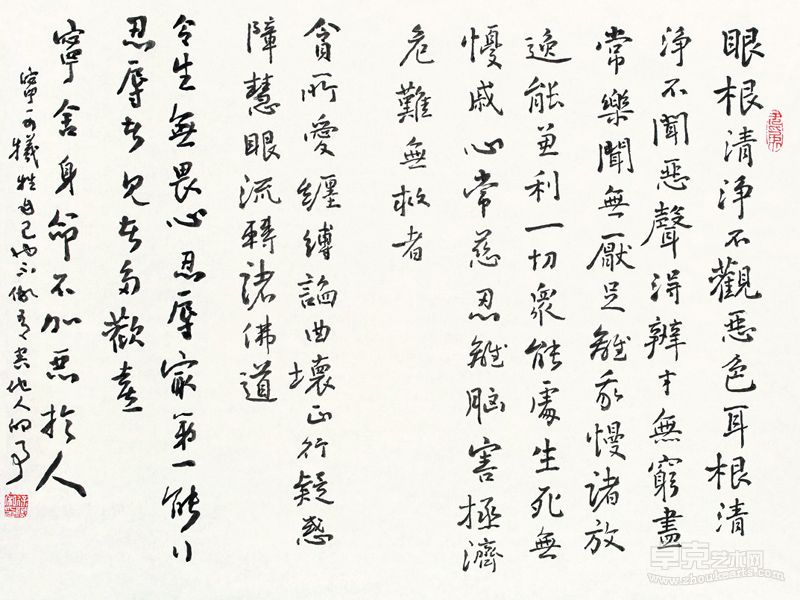 眼根清淨不觀惡色耳根清
淨不聞惡聲得辨才無窮盡
常樂聞無厭足離我慢諸放
逸能兼利一切眾能處生死無
憂戚心常慈忍離惱害拯濟
危難無救者
貪所愛纏縛諂曲壞正行疑惑
障慧眼流轉諸佛道
令生無畏心忍辱最第一能行
忍辱者見者多歡喜
寧舍身命不加惡於人
寧可犧牲自己也不做有害他人的事
卓克艺术网
www.zhoukearts.com